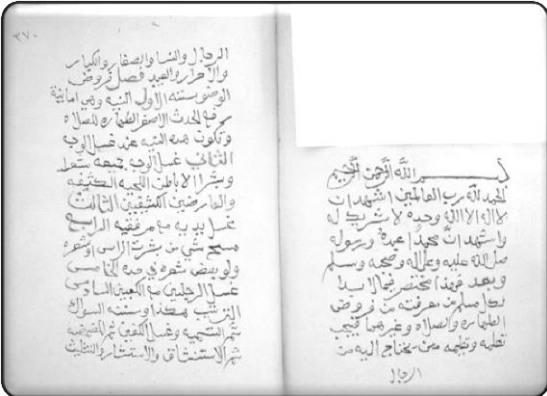 بسم الله الرحمن الرحيم
الحمد لله رب العالمين اشهد ان
لا اله الا الله وحده لا شريك له
واشهد ان محمدا عبده ورسوله
صلى الله عليه وعلى اله وصحبه وسلم
وبعد فهذا مختصر فيما لا بد
لكل مسلم من معرفته من فروض
الطهارة والصلاه وغيرهما فيجب
تعلمه وتعليمه من يحتاج اليه من
الرجال
٣٧٠
الرجال والنسا والصغار والكبار
والاحرار والعبيد فصل فروض
الوضو ستة الاول النيه وهي اما نية
رفع الحدث الاصغر الطهاره للصلاه
وتكون هذه النيه عند غسل الوجه
الثاني غسل الوجه جميعه شعرا
وبشرا الا باطن اللحيه الكثيفه
والعارضين الكثيفين الثالث
غسل يديه مع مرفقيه الرابع
مسح شي من بشرت الراس او شعره
ولو بعض شعره في حده الخامس
غسل الرجلين مع الكعبين السادس
الترتيب هكذا وسننه السواك
ثم التسميه وغسل الكفين ثم المضمضه
ثم الاستنشاق والاستنثار والتثليث